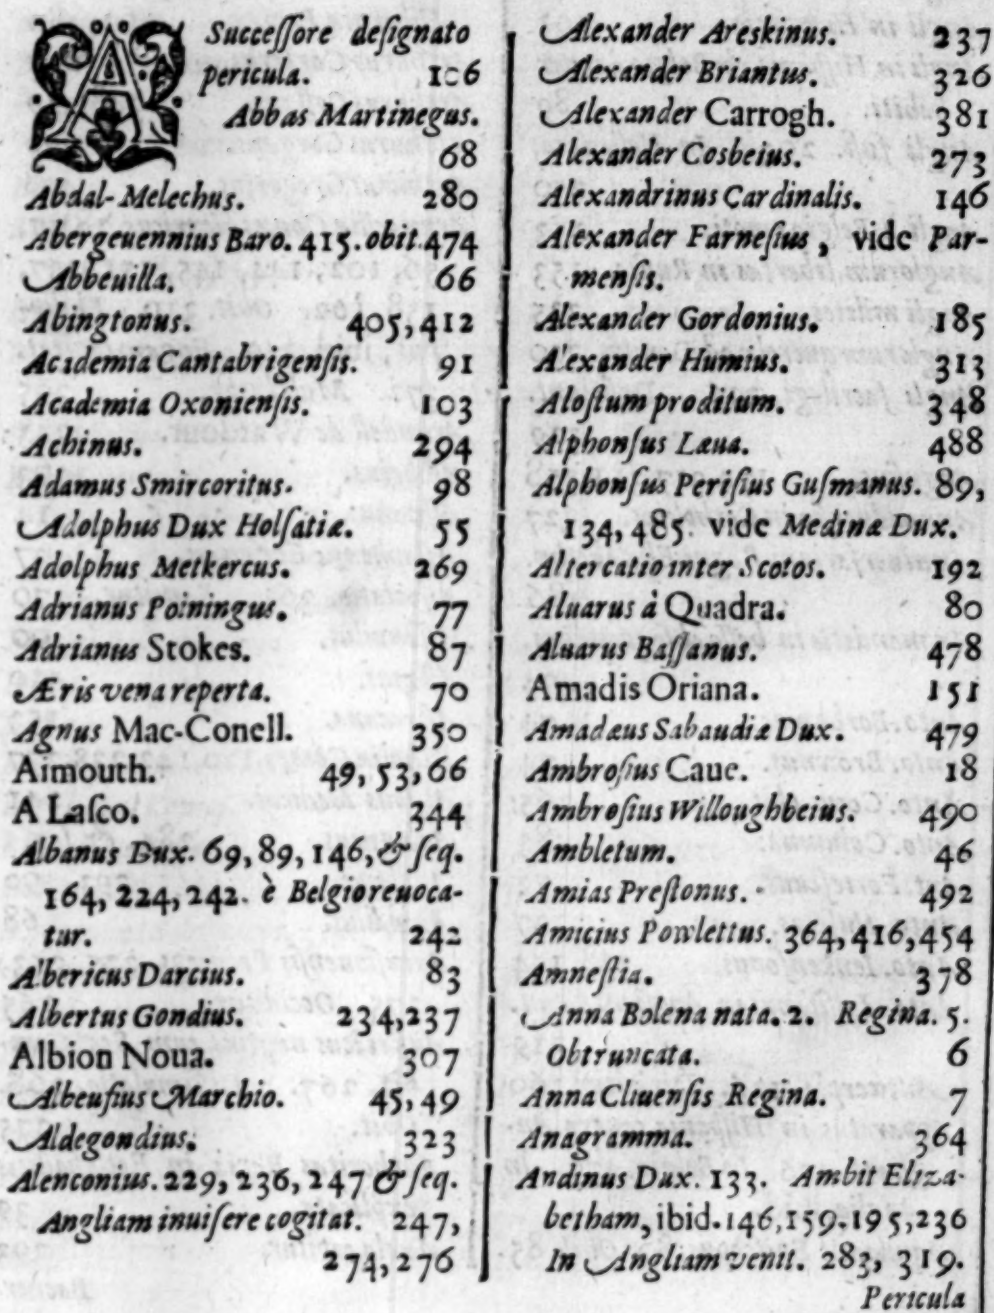 A Succeſſore deſignato
pericula. 106
Abbas Martinegus.
68
Abdal-Melechus. 280
Abergeuennius Baro. 415. obit. 474
Abbeuilla. 66
Abingtonus. 405, 412
Academia Cantabrigenſis. 91
Academia Oxonienſis. 103
Achinus. 294
Adamus Smircoritus. 98
Adolphus Dux Holſatiæ. 55
Adolphus Metkercus. 269
Adrianus Poiningus. 77
Adrianus Stokes. 87
Æris vena reperta. 70
Agnus Mac-Conell. 350
Aimouth. 49, 53, 66
A Laſco. 344
Albanus Dux. 69, 89, 146, & ſeq.
164, 224, 242. è Belgio reuoca-
tur. 242
Albericus Darcius. 83
Albertus Gondius. 234, 237
Albion Noua. 307
Albeuſius Marchio. 45, 49
Aldegondius. 323
Alenconius. 229, 236, 247 & ſeq.
Angliam inuiſere cogitat. 247,
274, 276
Alexander Areskinus. 237
Alexander Briantus. 326
Alexander Carrogh. 381
Alexander Cosbeius. 273
Alexandrinus Cardinalis. 146
Alexander Farneſius, vide Par-
menſis.
Alexander Gordonius. 185
Alexander Humius. 313
Aloſtum proditum. 348
Alphonſus Læua. 488
Alphonſus Periſius Guſmanus. 89,
134, 485. vide Medinæ Dux.
Altercatio inter Scotos. 192
Aluarus à Quadra. 80
Aluarus Baſſanus. 478
Amadis Oriana. 151
Amadæus Sabaudiæ Dux. 479
Ambroſius Caue. 18
Ambroſius Willoughbeius. 490
Ambletum. 46
Amias Preſtonus. 492
Amicius Powlettus. 364, 416, 454
Amneſtia. 378
Anna Bolena nata. 2. Regina. 5.
Obtruncata. 6
Anna Cliuenſis Regina. 7
Anagramma. 364
Andinus Dux. 133. Ambit Eliza-
betham, ibid. 146, 159. 195, 236
In Angliam venit. 283, 319.
Pericula